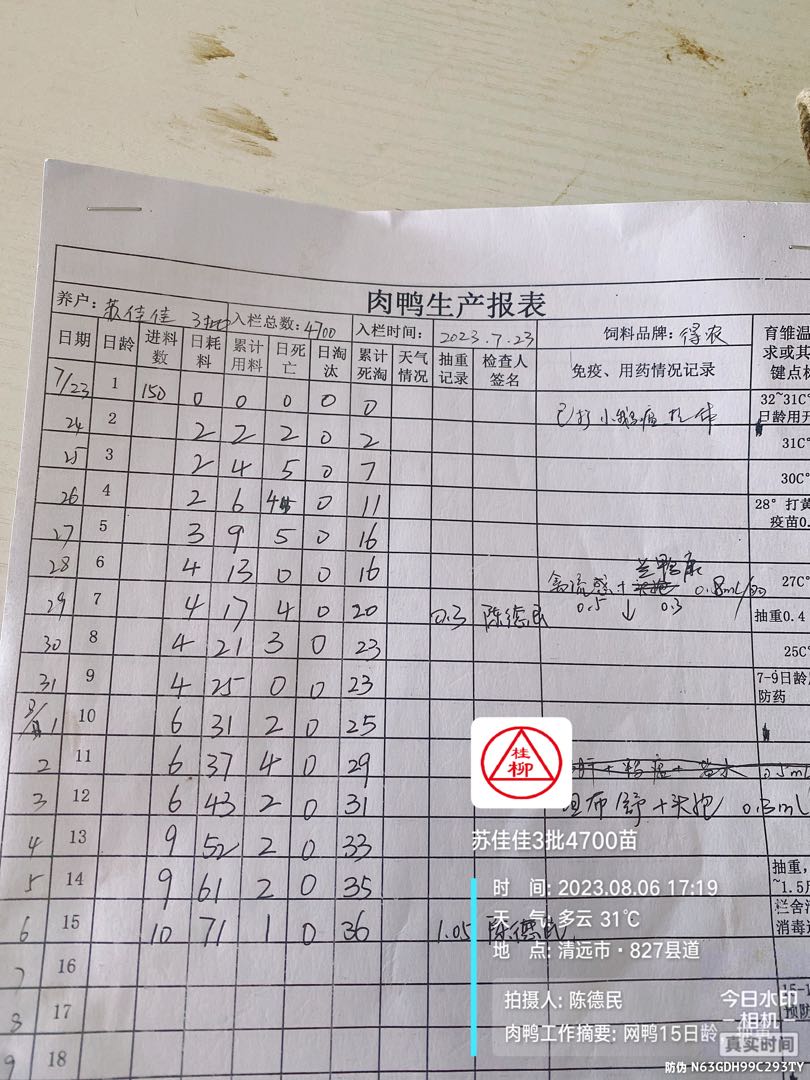 肉鸭生产报表
养户: 苏佳佳 3批 入栏总数: 4700 入栏时间: 2023.7.23 饲料品牌: 得农 育雏温
日期 日龄 进料数 日耗料 累计用料 日死亡 日淘汰 累计死淘 天气情况 抽重记录 检查人签名 免疫、用药情况记录 求或其 键点标
7/23 1 150 0 0 0 0 0 32~31C° 日龄用开
24 2 2 2 2 0 2 已打小鹅瘟抗体 31C°
25 3 2 4 5 0 7 30C°
26 4 2 6 4 0 11 28° 打黄 疫苗0.
27 5 3 9 5 0 16
28 6 4 13 0 0 16 27C°
禽流感+ 0.8mL/
29 7 4 17 4 0 20 0.3 陈德民 0.5 ↓ 0.3 抽重0.4
30 8 4 21 3 0 23 25C°
31 9 4 25 0 0 23 7-9日龄 防药
8/1 10 6 31 2 0 25
2 11 6 37 4 0 29 0.5mL
3 12 6 43 2 0 31 布舒+头孢 0.3mL
4 13 9 52 2 0 33
5 14 9 61 2 0 35 抽重, ~1.5
6 15 10 71 1 0 36 1.05 陈德民 栏舍 消毒
7 16
8 17 15-1 预防
9 18
桂柳
苏佳佳3批4700苗
时 间: 2023.08.06 17:19
天 气: 多云 31℃
地 点: 清远市·827县道
拍摄人: 陈德民
肉鸭工作摘要: 网鸭15日龄
今日水印
相机
真实时间
防伪 N63GDH99C293TY